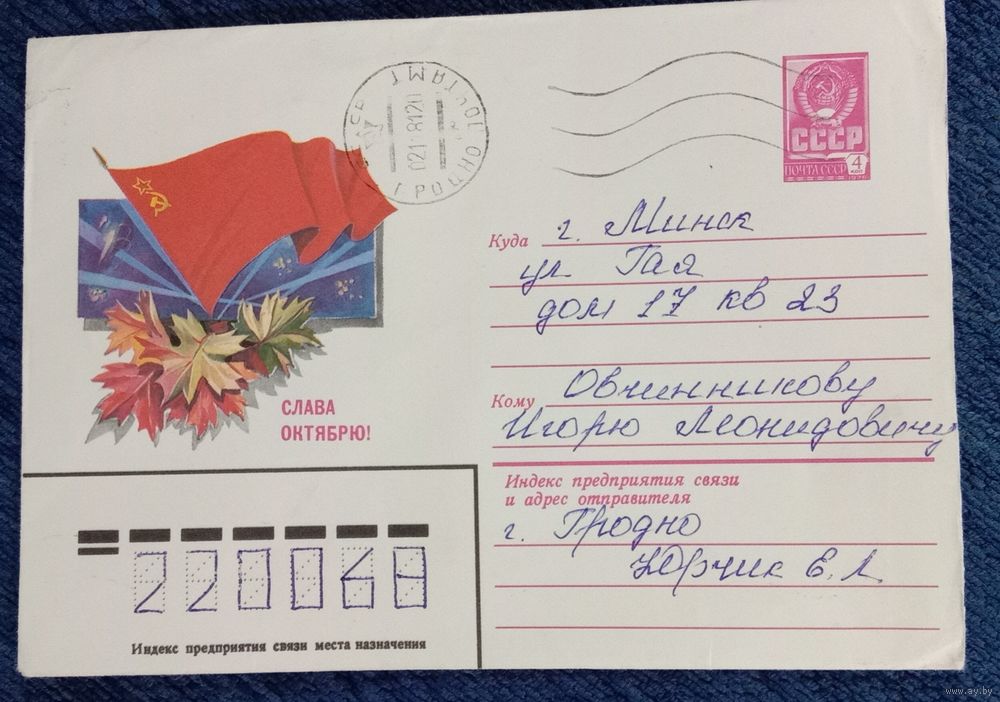 СССР
ПОЧТА СССР
4
КОП
1976
ПОЧТАМТ
021181 20
ГРОДНО
Куда г. Минск
ул Гая
дом 17 кв 23
Кому Овчинникову
Игорю Леонидовичу
СЛАВА
ОКТЯБРЮ!
Индекс предприятия связи
и адрес отправителя
г. Гродно
Юрчик Е. Л.
220068
Индекс предприятия связи места назначения
www.ay.by